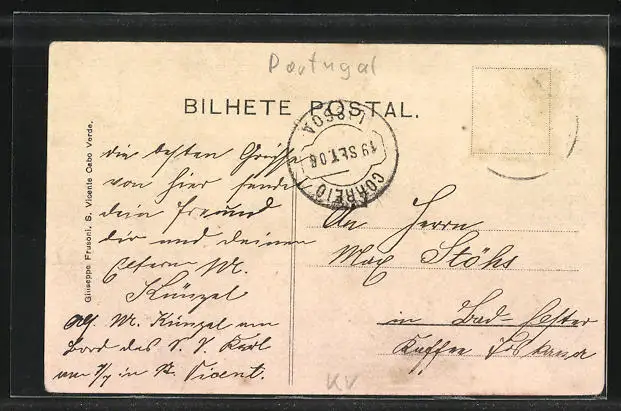 Portugal
BILHETE POSTAL.
CORREIO
LISBOA
19 SET. 06
Giuseppe Frusoni, S. Vicente Cabo Verde.
die besten Grüsse
von hier sendet
dein Freund
dir und deinen
Eltern M.
Künzel
M. Künzel am
Bord des S.
in St. Vicent.
An Herrn
Max Stöhs
in Bad-Elster
Kaffee
KV